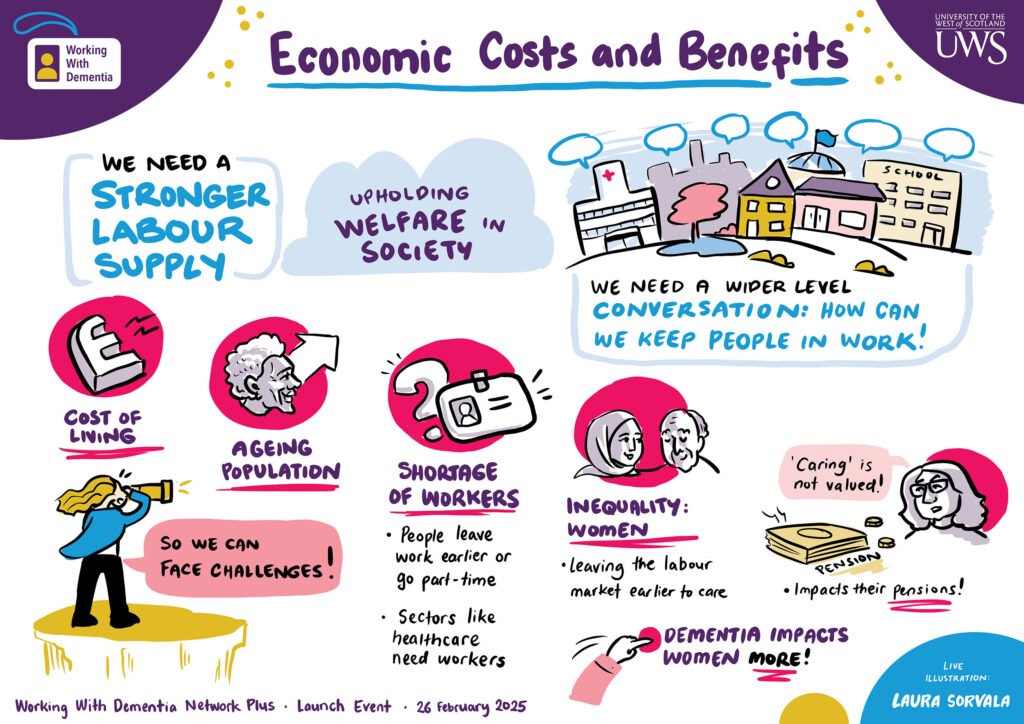 Working
With
Dementia
Economic Costs and Benefits
UNIVERSITY OF THE
WEST OF SCOTLAND
UWS
WE NEED A
STRONGER
LABOUR
SUPPLY
UPHOLDING
WELFARE IN
SOCIETY
SCHOOL
WE NEED A WIDER LEVEL
CONVERSATION: HOW CAN
WE KEEP PEOPLE IN WORK!
£
COST OF
LIVING
AGEING
POPULATION
?
SHORTAGE
OF WORKERS
• People leave
work earlier or
go part-time
• Sectors like
healthcare
need workers
INEQUALITY:
WOMEN
• Leaving the labour
market earlier to care
'Caring' is
not valued!
PENSION
• Impacts their pensions!
DEMENTIA IMPACTS
WOMEN MORE!
SO WE CAN
FACE CHALLENGES!
Working With Dementia Network Plus · Launch Event · 26 February 2025
LIVE
ILLUSTRATION:
LAURA SORVALA